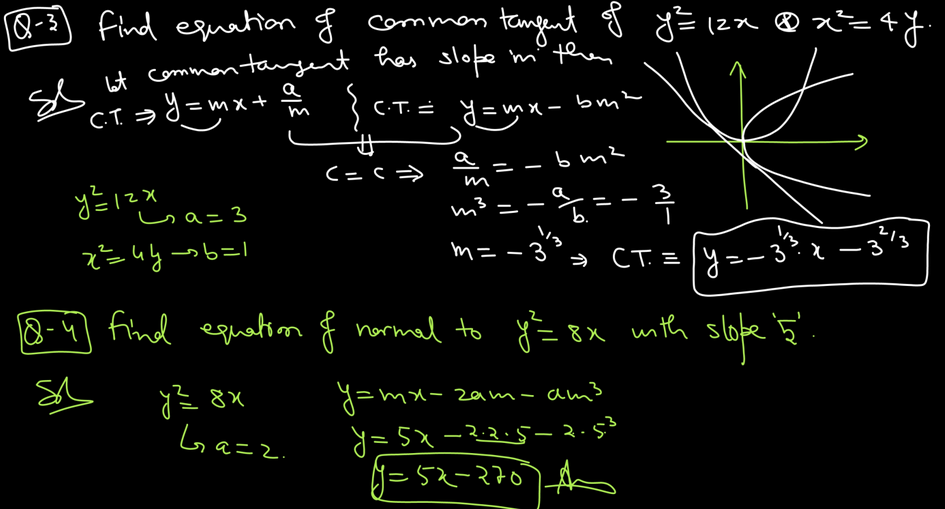 Q-3 Find equation of common tangent of y² = 12x & x² = 4y.
Sol let common tangent has slope 'm' then
C.T. ⇒ y = mx + a/m { C.T. ≡ y = mx - bm²
c = c ⇒ a/m = - bm²
y² = 12x
↳ a = 3
x² = 4y → b = 1
m³ = - a/b = - 3/1
m = - 3^1/3 ⇒ C.T. ≡ y = - 3^1/3 . x - 3^2/3
Q-4 Find equation of normal to y² = 8x with slope '5'.
Sol y² = 8x y = mx - 2am - am³
↳ a = 2. y = 5x - 2·2·5 - 2·5³
y = 5x - 270 Ans